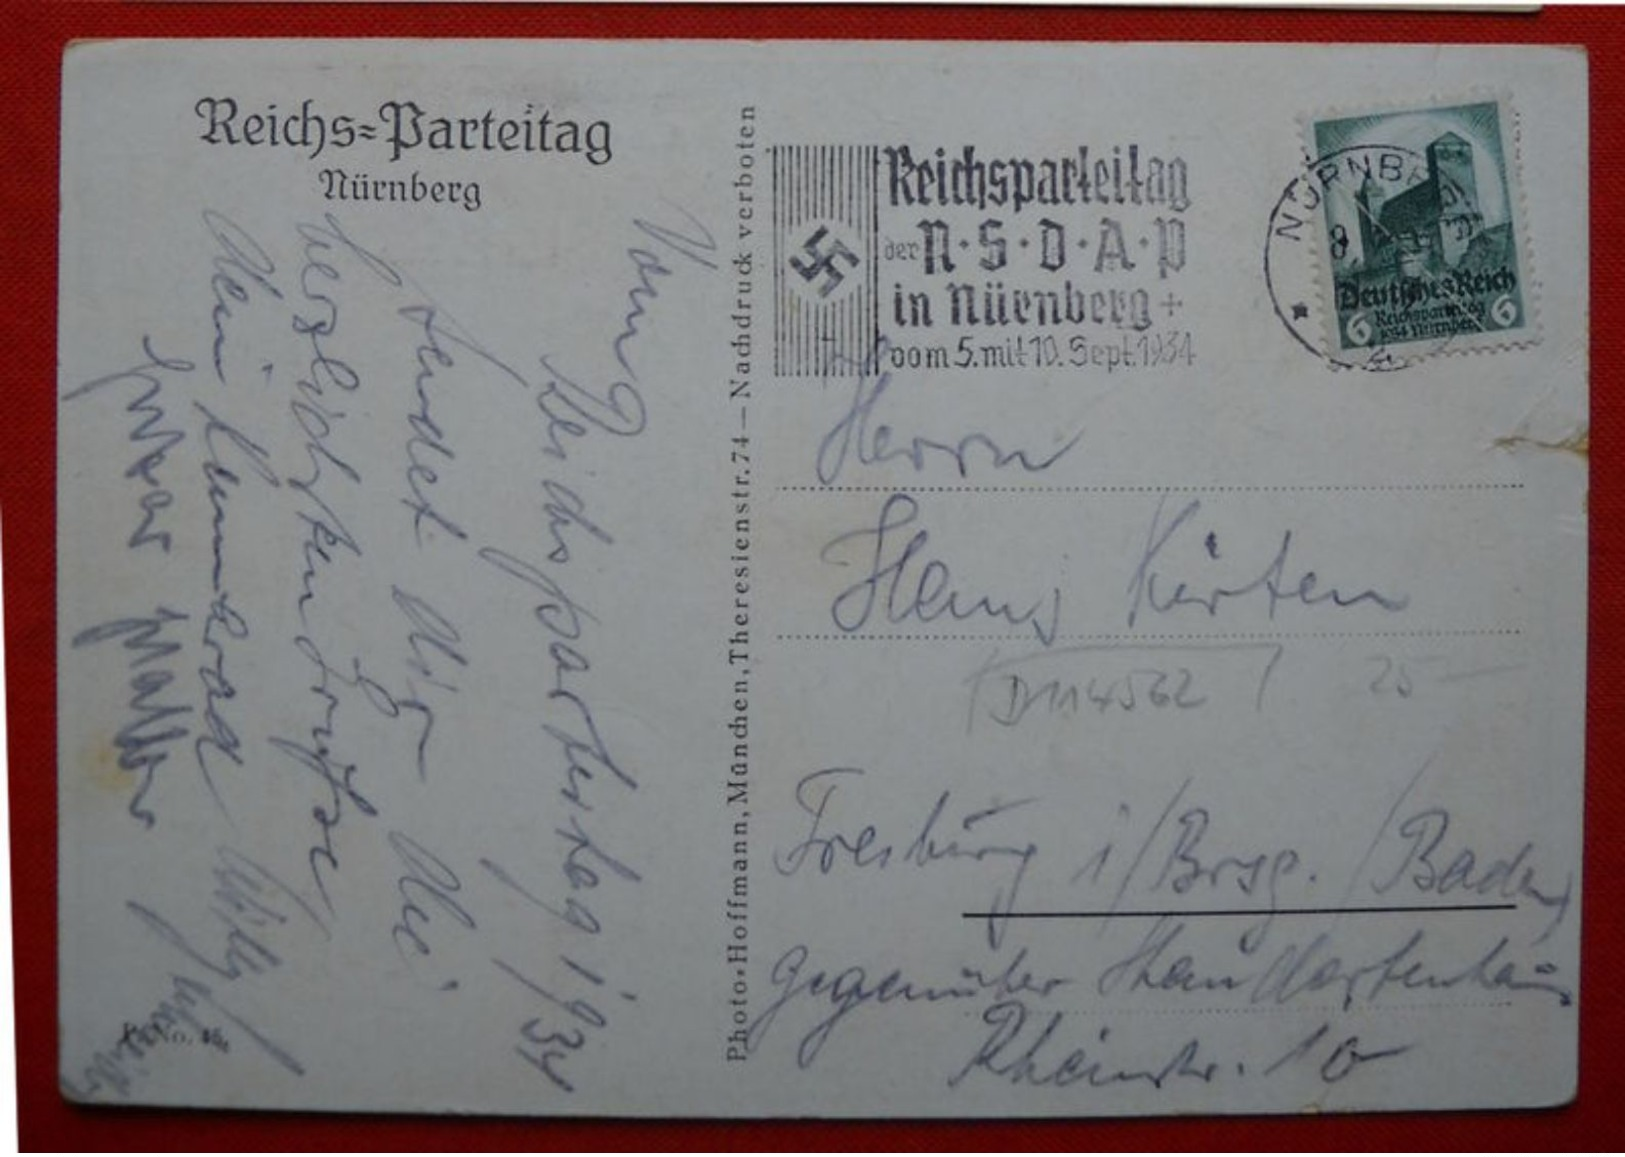 Reichs=Parteitag
Nürnberg
Vom
Reichsparteitag 1934
sendet Dir die
herzlichsten Grüsse
Dein Kamerad Willy
Photo-Hoffmann, München, Theresienstr. 74 — Nachdruck verboten
Reichsparteitag
der N·S·D·A·P
in Nürnberg +
vom 5. mit 10. Sept. 1934
NÜRNBERG
8
Deutsches Reich
6 Reichsparteitag 6
1934 Nürnberg
Herrn
Hans Kürten
D114562 25-
Freiburg i/Brsg. /Baden
gegenüber Standartenhaus
Rheinstr. 10